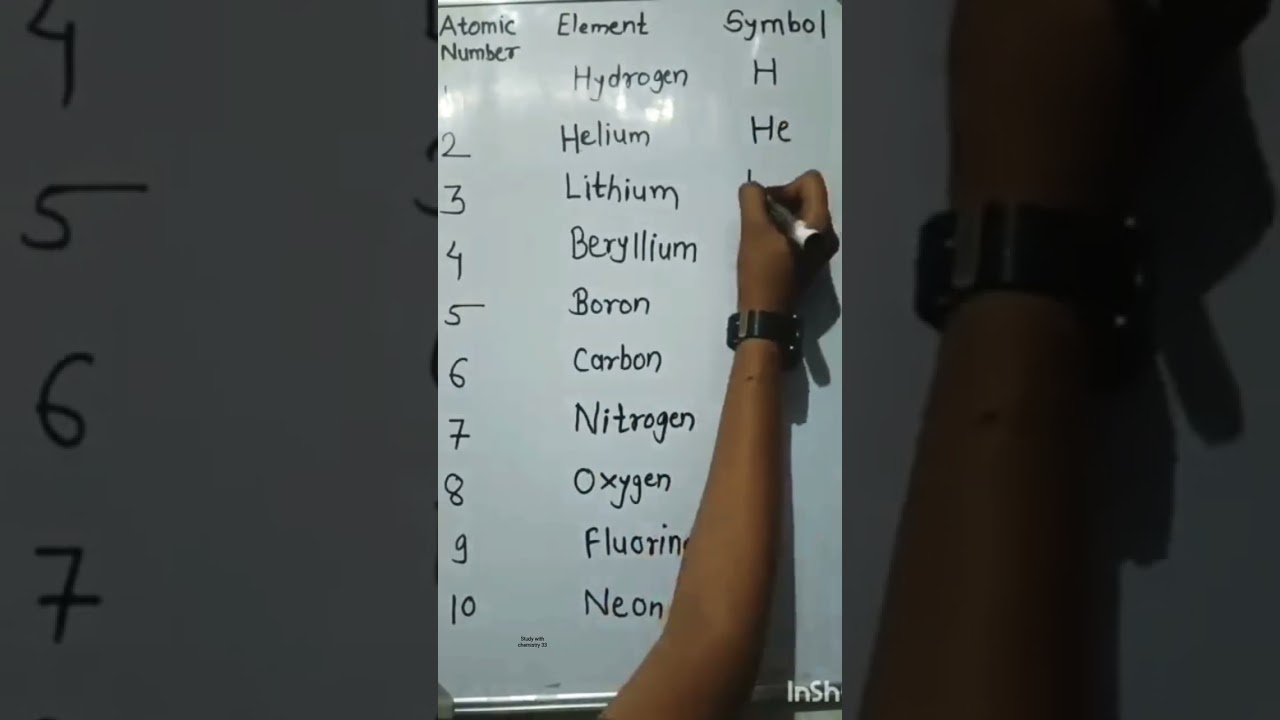 Atomic Number Element Symbol
1 Hydrogen H
2 Helium He
3 Lithium
4 Beryllium
5 Boron
6 Carbon
7 Nitrogen
8 Oxygen
9 Fluorin
10 Neon
Study with
chemistry 33
InSh
4
5
6
7